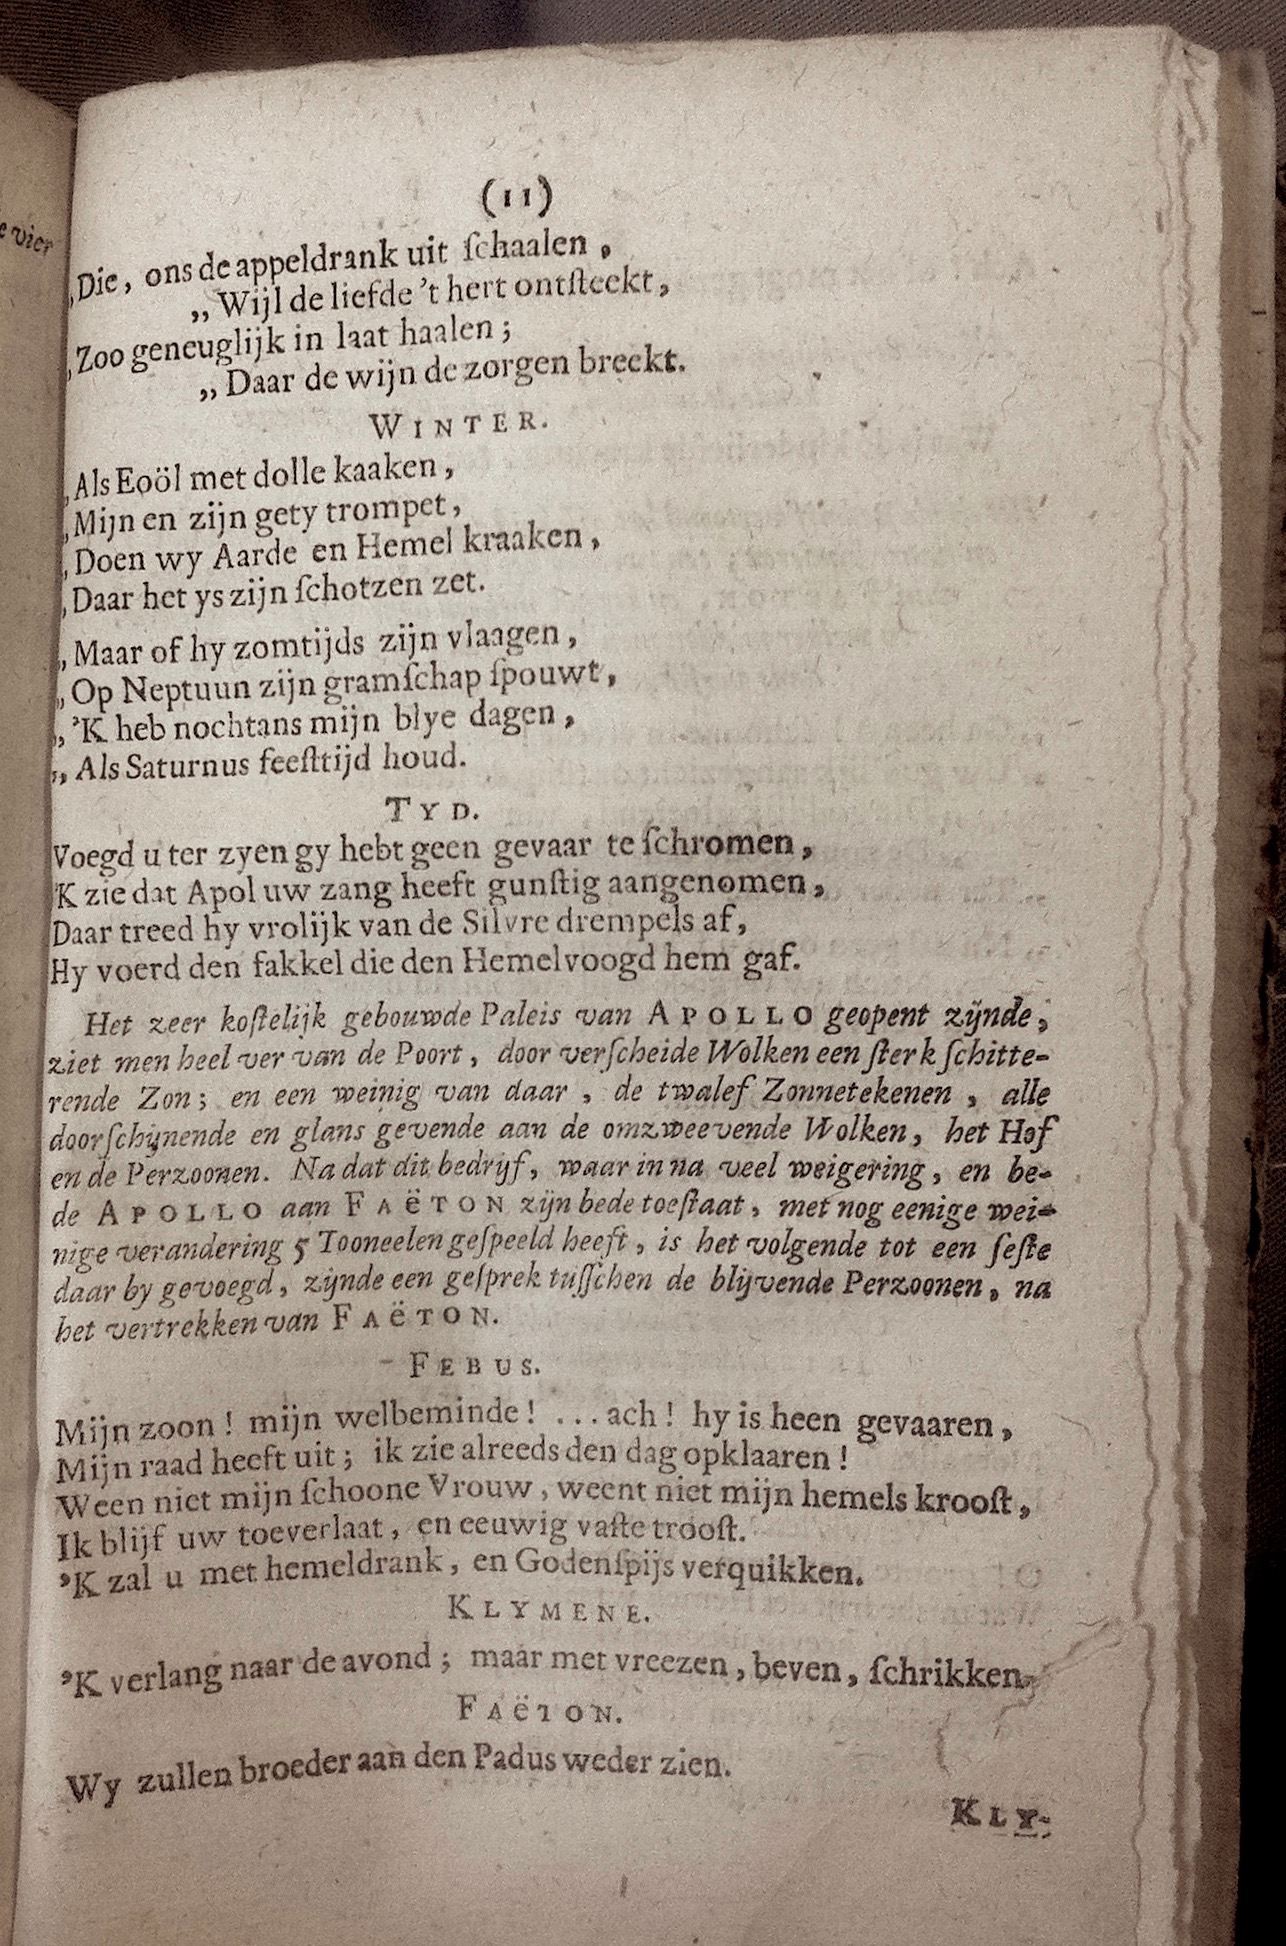 e vier
(11)
„Die, ons de appeldrank uit ſchaalen,
„Wijl de liefde 't hert ontſteekt,
„Zoo geneuglijk in laat haalen;
„Daar de wijn de zorgen breekt.
WINTER.
„Als Eoöl met dolle kaaken,
„Mijn en zijn gety trompet,
„Doen wy Aarde en Hemel kraaken,
„Daar het ys zijn ſchotzen zet.
„Maar of hy zomtijds zijn vlaagen,
„Op Neptuun zijn gramſchap ſpouwt,
„'K heb nochtans mijn blye dagen,
„Als Saturnus feeſttijd houd.
TYD.
Voegd u ter zyen gy hebt geen gevaar te ſchromen,
'K zie dat Apol uw zang heeft gunſtig aangenomen,
Daar treed hy vrolijk van de Silvre drempels af,
Hy voerd den fakkel die den Hemelvoogd hem gaf.
Het zeer koſtelijk gebouwde Paleis van APOLLO geopent zijnde,
ziet men heel ver van de Poort, door verſcheide Wolken een ſterk ſchitte-
rende Zon; en een weinig van daar, de twalef Zonnetekenen, alle
doorſchijnende en glans gevende aan de omzweevende Wolken, het Hof
en de Perzoonen. Na dat dit bedrijf, waar in na veel weigering, en be-
de APOLLO aan FAËTON zijn bede toeſtaat, met nog eenige wei-
nige verandering 5 Tooneelen geſpeeld heeft, is het volgende tot een ſeſte
daar by gevoegd, zijnde een geſprek tuſſchen de blijvende Perzoonen, na
het vertrekken van FAËTON.
FEBUS.
Mijn zoon! mijn welbeminde! ...ach! hy is heen gevaaren,
Mijn raad heeft uit; ik zie alreeds den dag opklaaren!
Ween niet mijn ſchoone Vrouw, weent niet mijn hemels krooſt,
Ik blijf uw toeverlaat, en eeuwig vaſte trooſt.
'K zal u met hemeldrank, en Godenſpijs verquikken.
KLYMENE.
'K verlang naar de avond; maar met vreezen, beven, ſchrikken.
FAËTON.
Wy zullen broeder aan den Padus weder zien.
KLY-